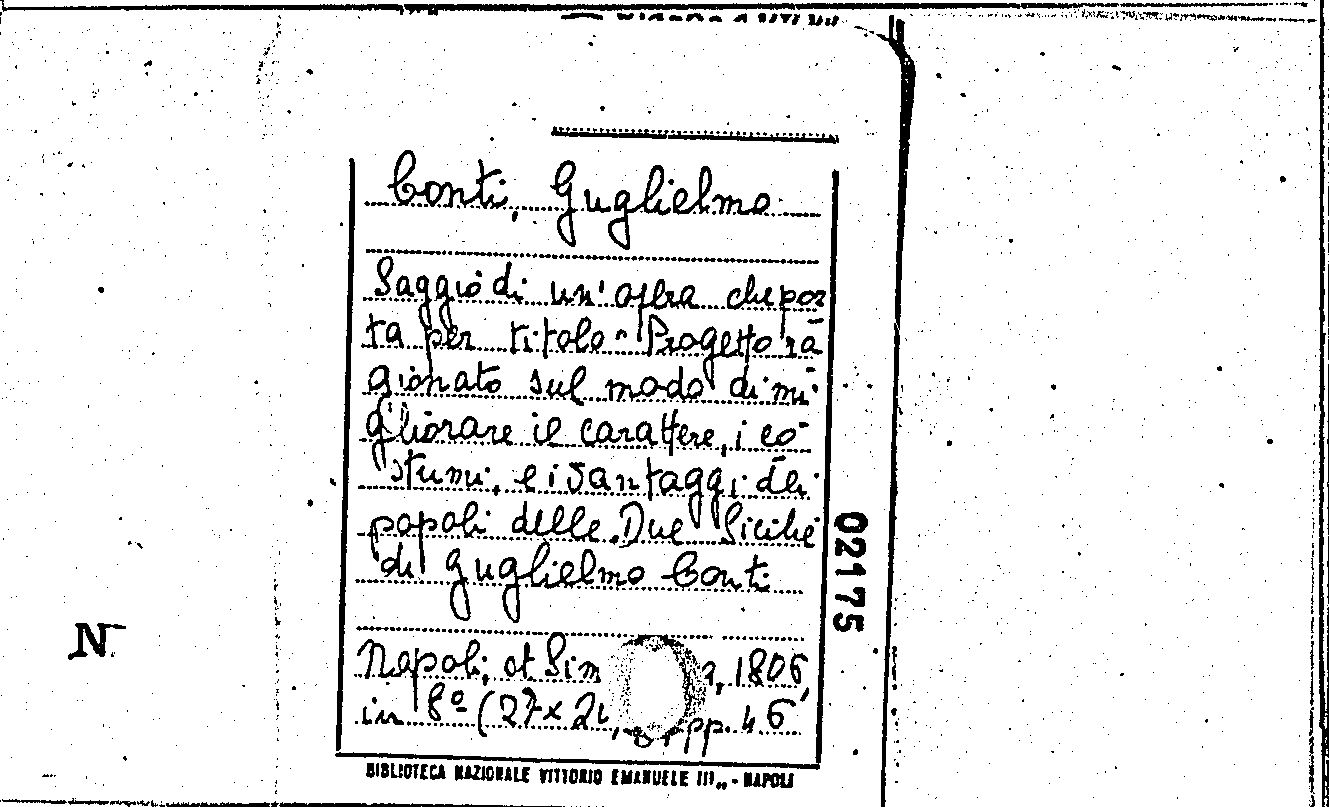 Conti, Guglielmo
Saggio di un'opera che por
ta per titolo "Progetto ra
gionato sul modo di mi
gliorare il carattere, i co
stumi, e i vantaggi dei
popoli delle Due Sicilie
di Guglielmo Conti
Napoli, 1806,
in 8º (27x pp. 46
02175
N
BIBLIOTECA NAZIONALE VITTORIO EMANUELE III„ - NAPOLI